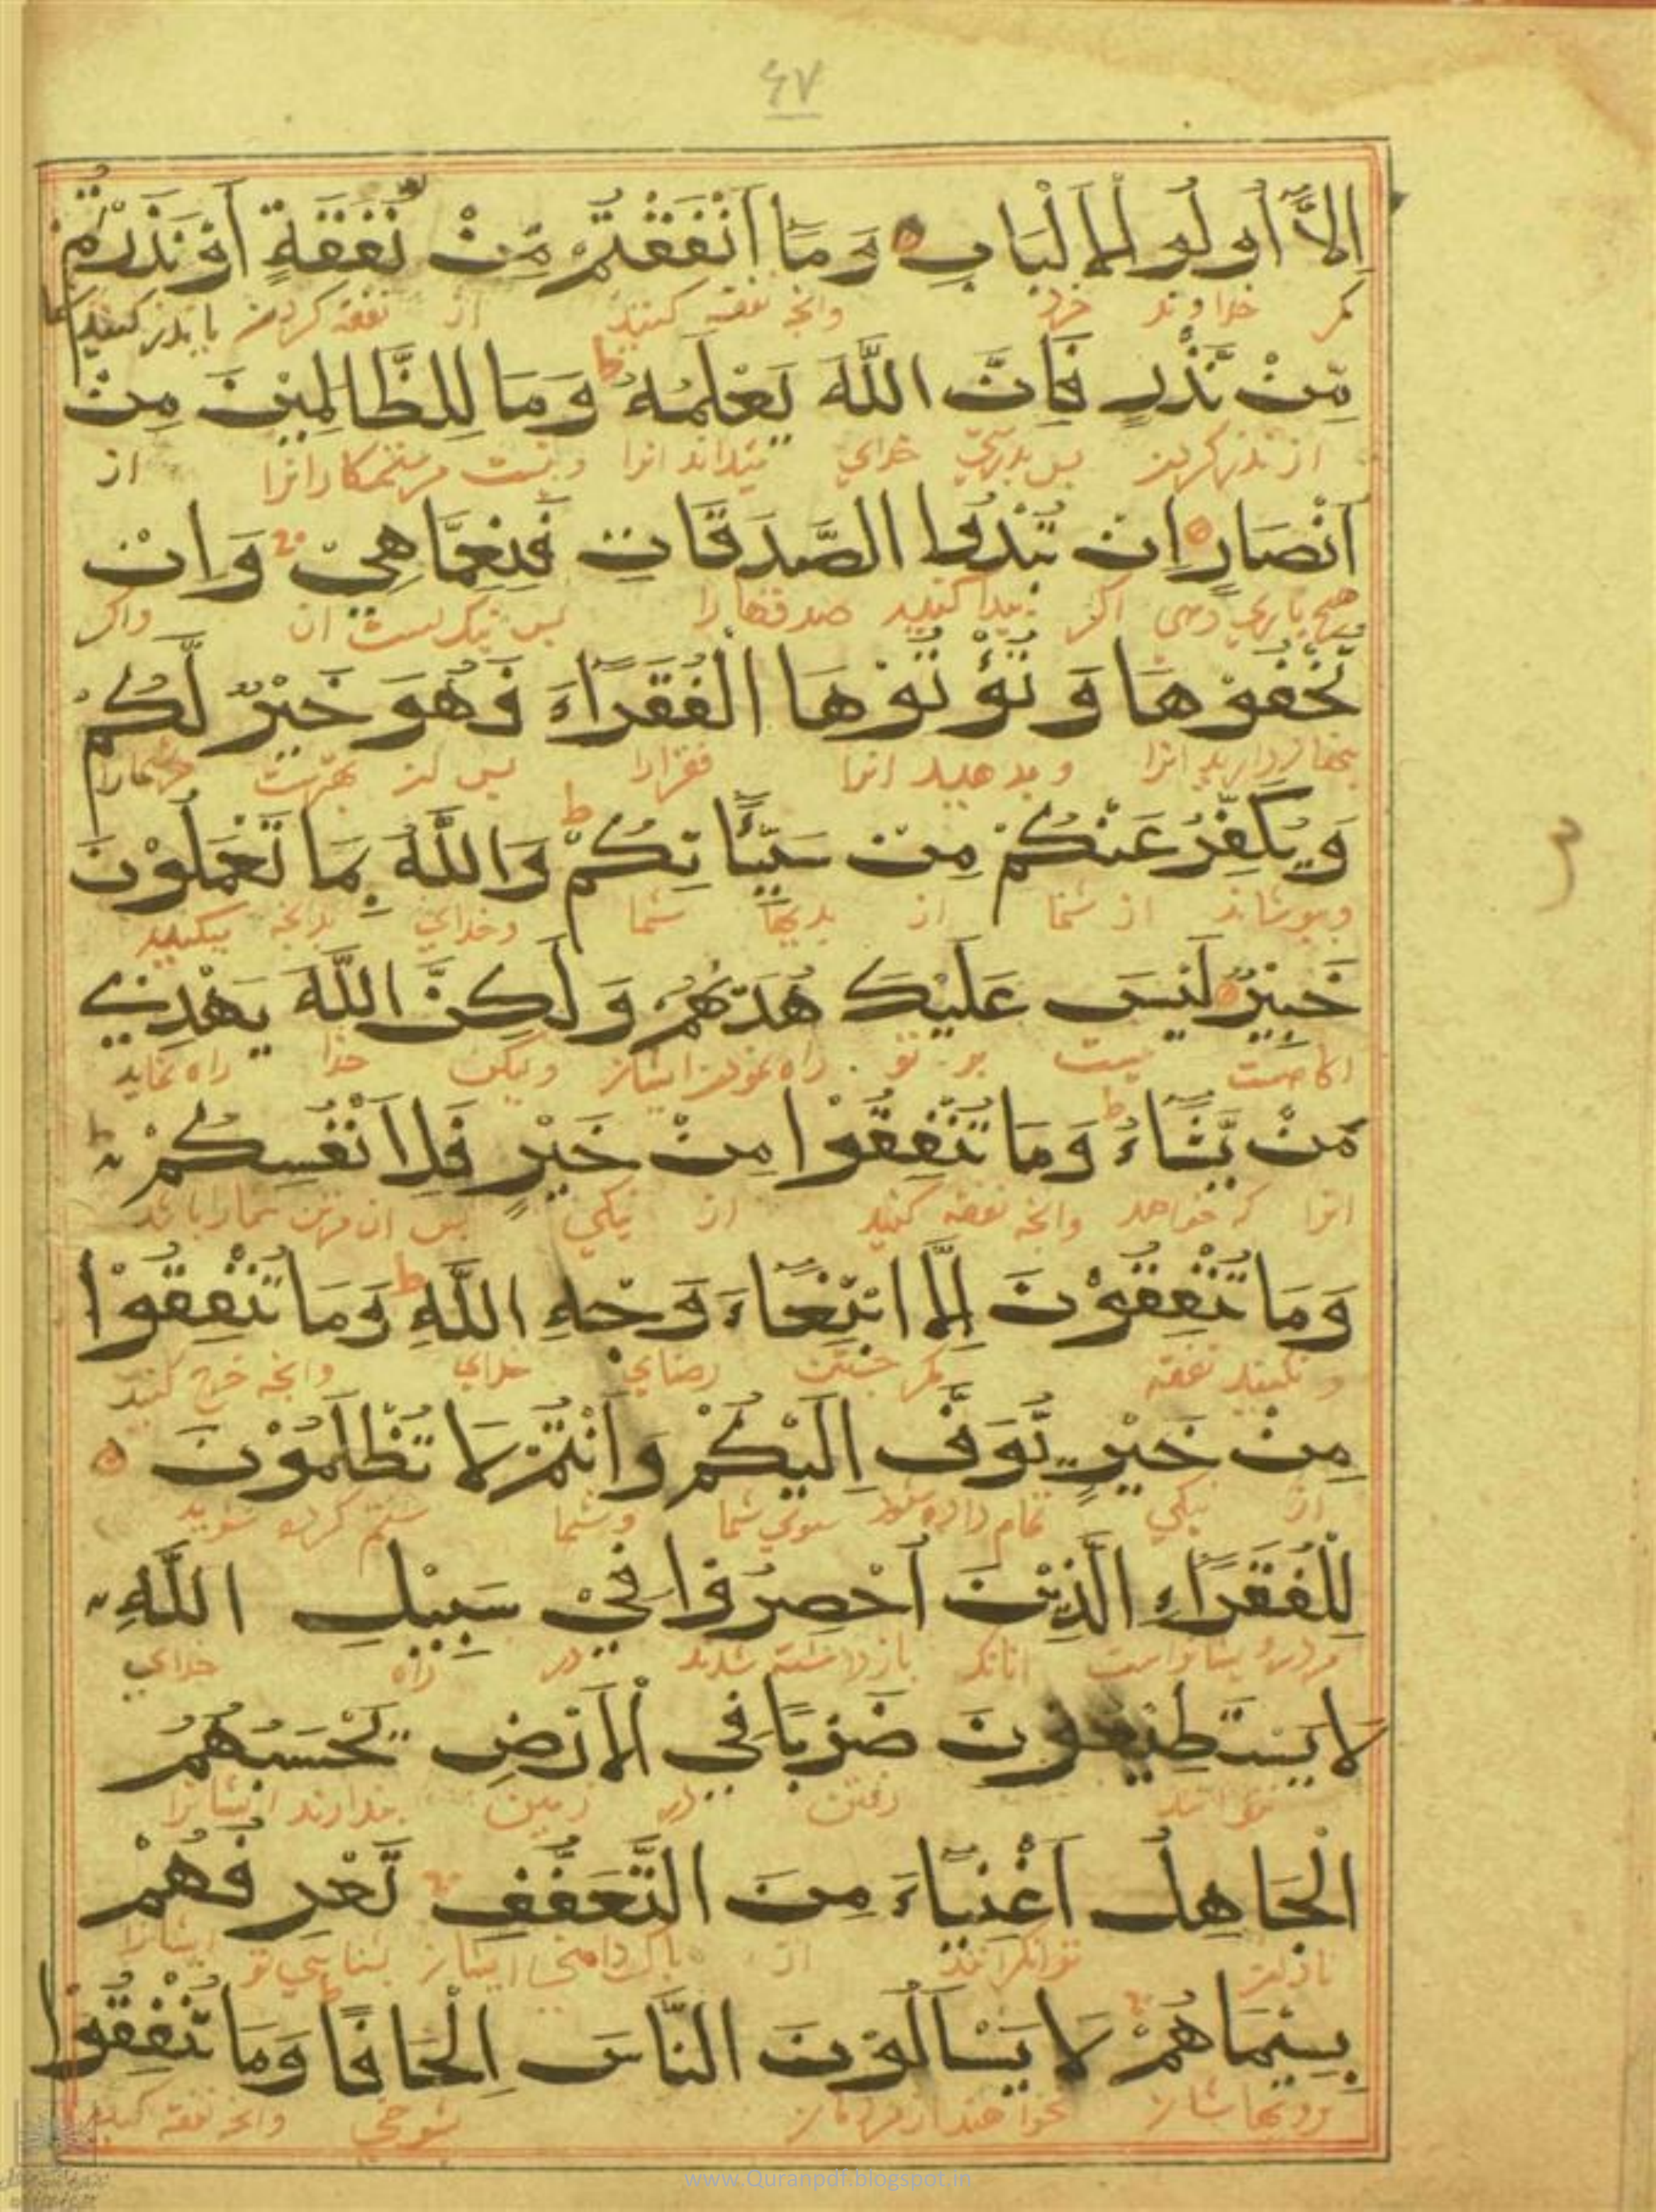 ٤٧
اِلَّآ اُولُو الْاَلْبَابِ وَمَآ اَنْفَقْتُمْ مِّنْ نَّفَقَةٍ اَوْ نَذَرْتُمْ
مكر خداوند خرد وانچه نفقه كنيد از نفقه كردن يا نذر كنيد
مِّنْ نَّذْرٍ فَاِنَّ اللّٰهَ يَعْلَمُهٗ وَمَا لِلظَّالِمِيْنَ مِنْ
از نذر كردن پس بدرستي خداي ميداند انرا ونيست مر ستمكارانرا از
اَنْصَارٍ اِنْ تُبْدُوا الصَّدَقَاتِ فَنِعِمَّا هِيْ وَاِنْ
هيچ ياري دهي اكر پيدا كنيد صدقها را پس نيك است ان واكر
تُخْفُوْهَا وَتُؤْتُوْهَا الْفُقَرَآءَ فَهُوَ خَيْرٌ لَّكُمْ
انرا وبدهيد انرا فقرا را پس ان بهتر است
وَيُكَفِّرُ عَنْكُمْ مِنْ سَيِّاٰتِكُمْ وَاللّٰهُ بِمَا تَعْمَلُوْنَ
وبپوشاند از شما از بديها شما وخداي بدانچه ميكنيد
خَبِيْرٌ لَيْسَ عَلَيْكَ هُدٰىهُمْ وَلَكِنَّ اللّٰهَ يَهْدِيْ
نيست بر تو راه نمودن ايشان وليكن خدا راه نمايد
مَنْ يَّشَآءُ وَمَا تُنْفِقُوْا مِنْ خَيْرٍ فَلِاَنْفُسِكُمْ
انرا كه خواهد وانچه نفقه كنيد از نيكي پس
وَمَا تُنْفِقُوْنَ اِلَّا ابْتِغَآءَ وَجْهِ اللّٰهِ وَمَا تُنْفِقُوْا
ونكنيد نفقه مكر جستن رضاي خداي وانچه خرج كنيد
مِنْ خَيْرٍ يُّوَفَّ اِلَيْكُمْ وَاَنْتُمْ لَا تُظْلَمُوْنَ
از نيكي تمام داده شود سوي شما وشما ستم كرده شويد
لِلْفُقَرَآءِ الَّذِيْنَ اُحْصِرُوْا فِيْ سَبِيْلِ اللّٰهِ
انانكه بازداشته شدند در راه خداي
لَا يَسْتَطِيْعُوْنَ ضَرْبًا فِي الْاَرْضِ يَحْسَبُهُمُ
نتوانند رفتن در زمين پندارند ايشانرا
الْجَاهِلُ اَغْنِيَآءَ مِنَ التَّعَفُّفِ تَعْرِفُهُمْ
نادان توانكرانند از پاك دامني ايشان بشناسي تو ايشانرا
بِسِيْمَاهُمْ لَا يَسْاَلُوْنَ النَّاسَ اِلْحَافًا وَمَا تُنْفِقُوْا
نخواهند از مردمان شوخي وانچه نفقه كنيد
www.Quranpdf.blogspot.in